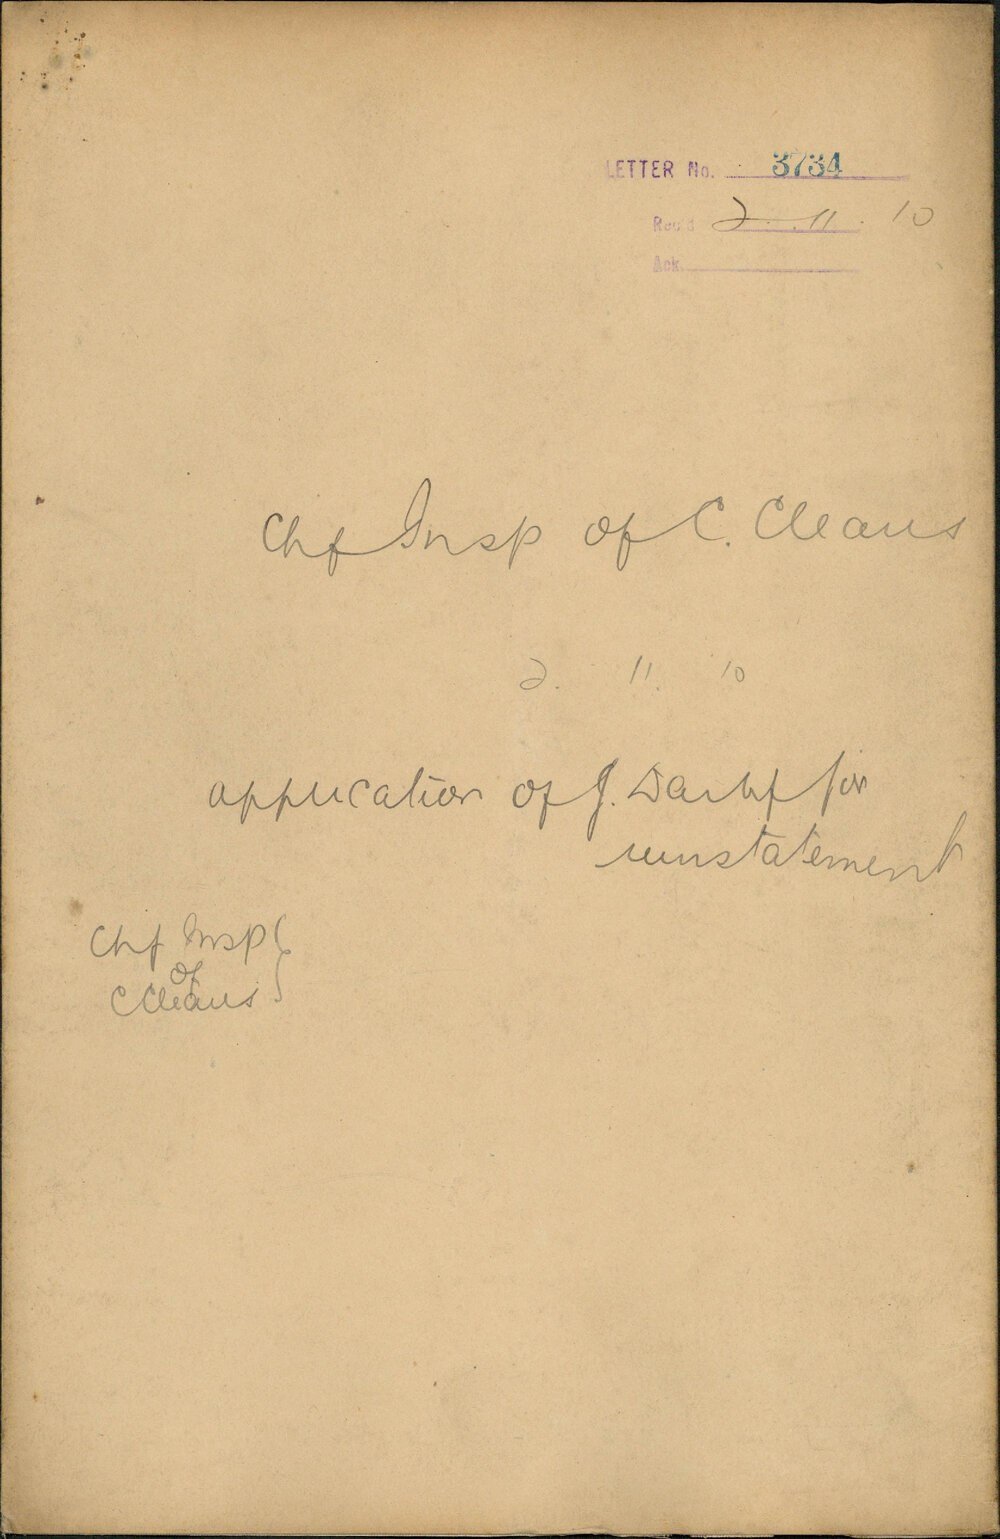 LETTER No. 3734
Rec'd 2. 11. 10
Ack.
Chf Insp of C. Cleans
2. 11. 10
application of J. for
reinstatement
Chf Insp
of
C Cleans